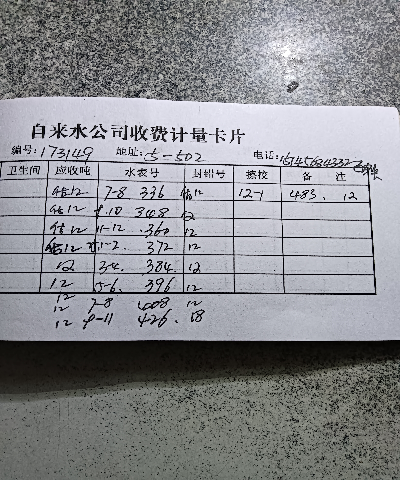 自来水公司收费计量卡片
编号:173149 地址:5-502 电话:
卫生间 应收吨 水表号 封铅号 换校 备 注
估12 7-8 336 估12 12-1 483. 12
估12 9.10 348 12
估12 11-12 .360 12
估12 1-2. 372 12
12 3-4. 384. 12
12 5-6. 396 12
12 7-8 408 12
12 9-11 426. 18